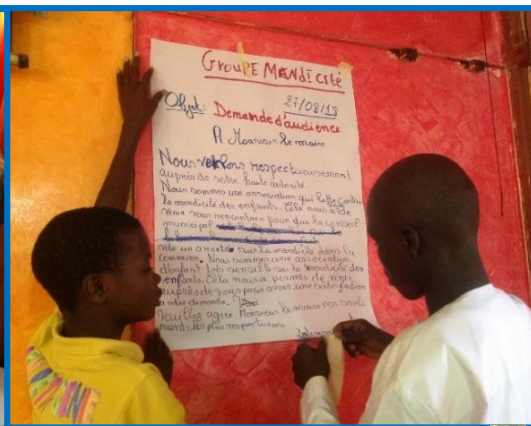 GROUPE MENDICITÉ
27/08/18
Objet: Demande d'audience
A Monsieur le maire
Nous venons respectueusement
auprès de votre haute autorité
Nous sommes une association qui lutte contre
la mendicité des enfants. Cela nous aide
vous rencontrer pour que le conseil
municipal
un arrêté sur la mendicité dans la
commune. Nous sommes une association
d'enfant très sensible sur la mendicité des
enfants. Cela nous a permis de venir
auprès de vous pour avoir une satisfaction
à notre demande.
Veuillez agréer Monsieur le maire nos senti-
ments les plus respectueux